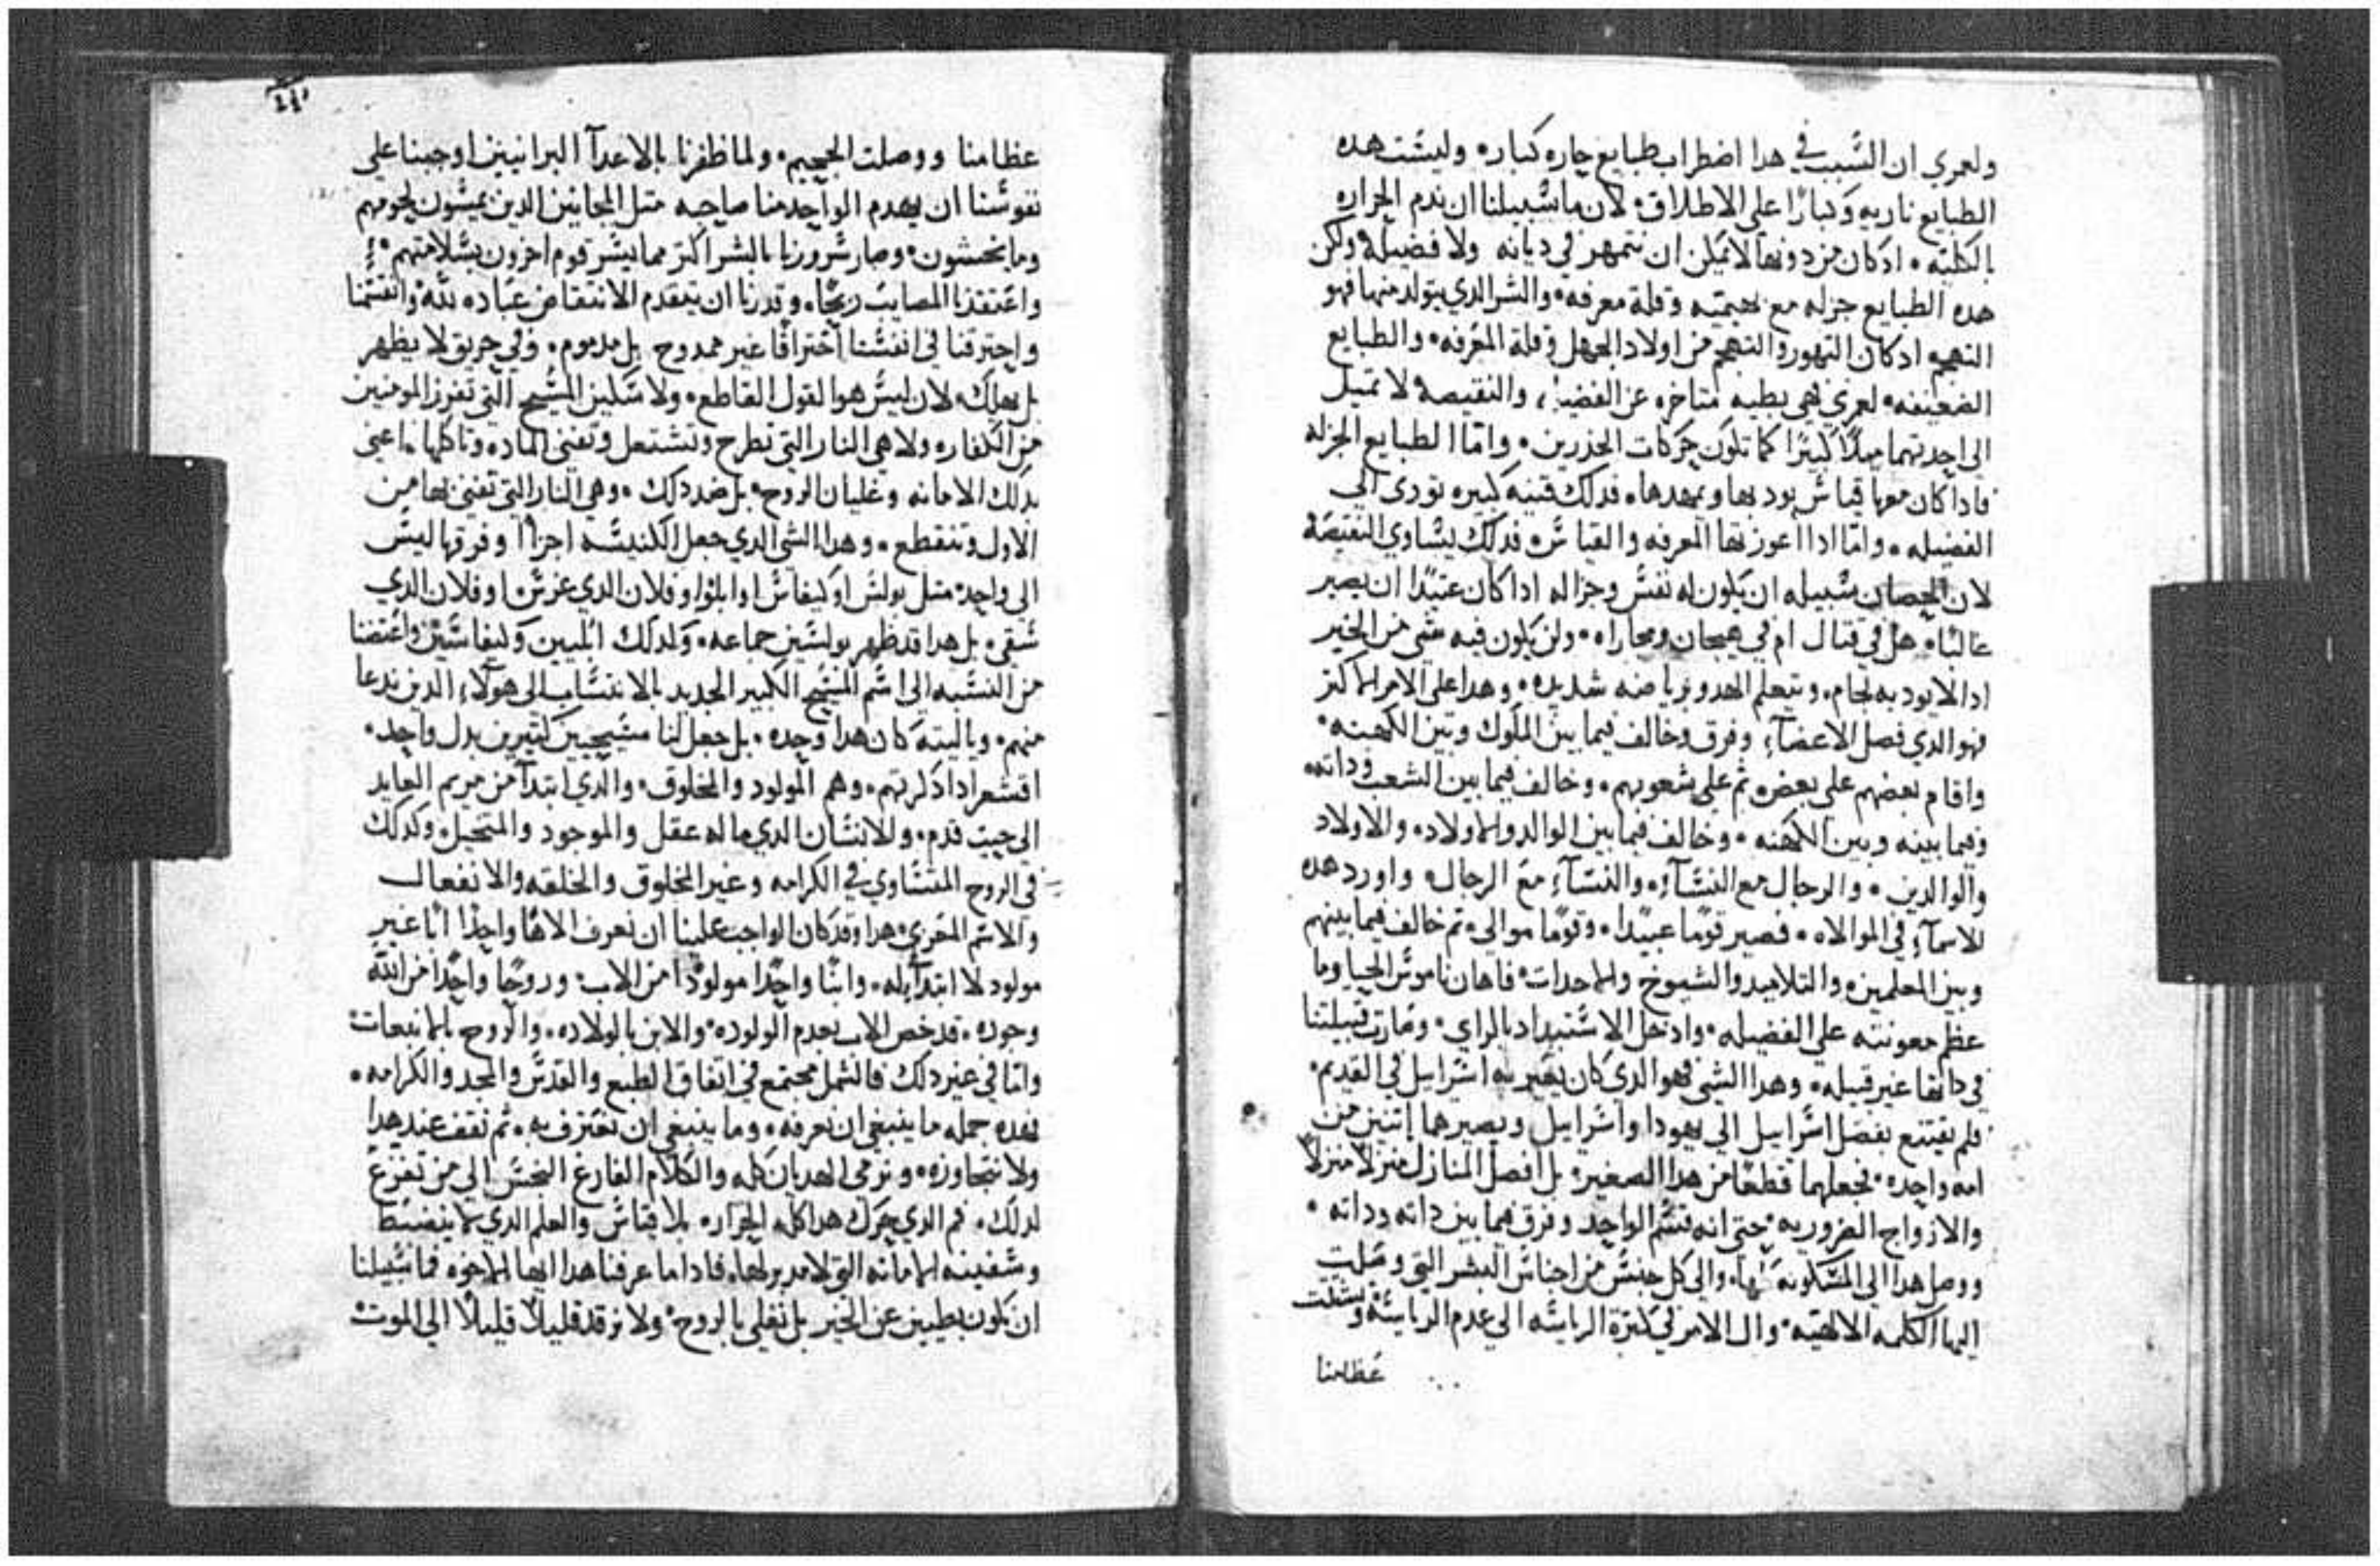 ولعمري ان السبب في هدا اضطراب طبايع حاره كباره وليست هده
الطبايع ناريه وكبارًا على الاطلاق لان ما سبيلنا ان ندم الحراره
بالكليه ادكان من دونها لا يمكن ان نتمهر في ديانه ولا فضيله ولكن
هده الطبايع جزله مع وقلة معرفه والشر الدي يتولد منها فهو
التهجم ادكان التهور والتهجم من اولاد الجهل وقلة المعرفه والطبايع
الضعيفه لعمري فهي بطيه متاخره عن الفضيله والنقيصه لا تميل
الى احدتهما ميلًا كبيرًا كما تكون حركات الخدرين واما الطبايع الجزله
فادا كان معها قياس يود بها ويمهدها فدلك قنيه كبيره تودي الى
الفضيله واما ادا اعوزتها المعرفه والقياس فدلك يساوي النقيصه
لان الحصان سبيله ان يكون له نفس وجزاله اداكان عتيدًا ان يصير
غالبًا هل في قتال ام في هيجان ومجاراه ولن يكون فيه شي من الخير
ادا لم يودبه لجام ويتعلم الهدو برياضه شديده وهدا على الامر الاكتر
فهو الدي فصل الاعضاء وفرق وخالف فيما بين الملوك وبين الكهنه
واقام بعضهم على بعض تم على شعوبهم وخالف فيما بين الشعب وداته
وفيما بينه وبين الكهنه وخالف فيما بين الوالد والاولاد والاولاد
والوالدين والرجال مع النساء والنساء مع الرجال واورد هده
الاسماء في الموالاه فصير قومًا عبيدًا وقومًا موالي تم خالف فيما بينهم
وبين المعلمين والتلاميد والشيوخ والاحدات فاهان ناموس الحيا وما
عظم معونته على الفضيله وادخل الاستبداد بالراي وصارت قبيلتنا
في داتها غير قبيله وهدا الشي فهو الدي كان يعير به اسراييل في القديم
فلم يقتنع بفصل اسراييل الى يهودا واسراييل ويصيرهما اتنين من
امه واحده فجعلهما قطعًا من هدا الصغير بل افصل المنازل منزلًا منزلًا
والازواج الضروريه حتى انه قسم الواحد وفرق فيما بين داته وداته
ووصل هدا الى المسكونه والى كل جنس من اجناس البشر التي وصلت
اليها الكلمه الالهيه وال الامر في كترة الرياسه الى عدم الرياسه وتشتت
عظامنا
عظامنا ووصلت الجحيم ولما ظفرنا بالاعدآ البرانيين اوجبنا على
نفوسنا ان يهدم الواحد منا صاحبه متل المجانين الدين يمشون لحومهم
وما يحسون وصار سرورنا بالشر اكتر مما يسر قوم اخرون بسلامتهم
واعتقدنا المصايب ربحًا وقدرنا ان تعقدم الانتقاض عباده لله وانقسمنا
واحترقنا في انفسنا احتراقًا غير ممدوح بل مدموم وفي حريق لا يطهر
بل يهلك لان ليس هو القول القاطع ولا سكين المسيح التي تفرز المومنين
من الكفار ولا هي النار التي تطرح وتشتعل وتفني الماده وتاكلها اعني
بدلك الامانه وغليان الروح بل ضد دلك وهي النار التي تفني بها من
الاول وتنقطع وهدا الشي الدي جعل الكنيسه اجزاا وفرقها ليس
الى واحد متل بولس او كيفاس او ابلوا وفلان الدي غرس او فلان الدي
سقى بل هدا قد ظهر بولسين جماعه وكدلك ابلسين وكيفاسين واعتضنا
من النسبه الى اسم المسيح الكبير الجديد بالانتساب الى هولاء الدين ندعا
منهم وياليته كان هدا وحده بل جعل لنا مسيحيين كتيرين بدل واحد
اقشعر ادا دكرتهم وهم المولود والمخلوق والدي ابتدا من مريم العايد
الى حيت قدم والانسان الدي ما له عقل والموجود والمتخيل وكدلك
في الروح المتساوي في الكرامه وغير المخلوق والخلقه والانفعال
والاسم المعري هدا وقد كان الواجب علينا ان نعرف الاهًا واحدًا ابًا غير
مولود لا ابتدآ له وابنًا واحدًا مولودًا من الاب وروحًا واحدًا من الله
وجوده قد خص الاب بعدم الولوده والابن بالولاده والروح بالانبعات
واما في غير دلك فالشمل مجتمع في اتفاق الطبع والقدس والمجد والكرامه
فهده جمله ما ينبغي ان نعرفه وما ينبغي ان نعترف به تم نقف عند هدا
ولا نتجاوزه ونرمي الهديان كله والكلام الفارغ النجس الى من تفرغ
لدلك فم الدي يحرك هدا كله الحراره بلا قياس والعلم الدي لا ينضبط
وسفينه الامانه التي لا مدبر لها فادا ما عرفنا هدا ايها الاخوه فما سبيلنا
ان نكون بطيين عن الخير بل نغلي بالروح ولا نرقد قليلًا قليلًا الى الموت